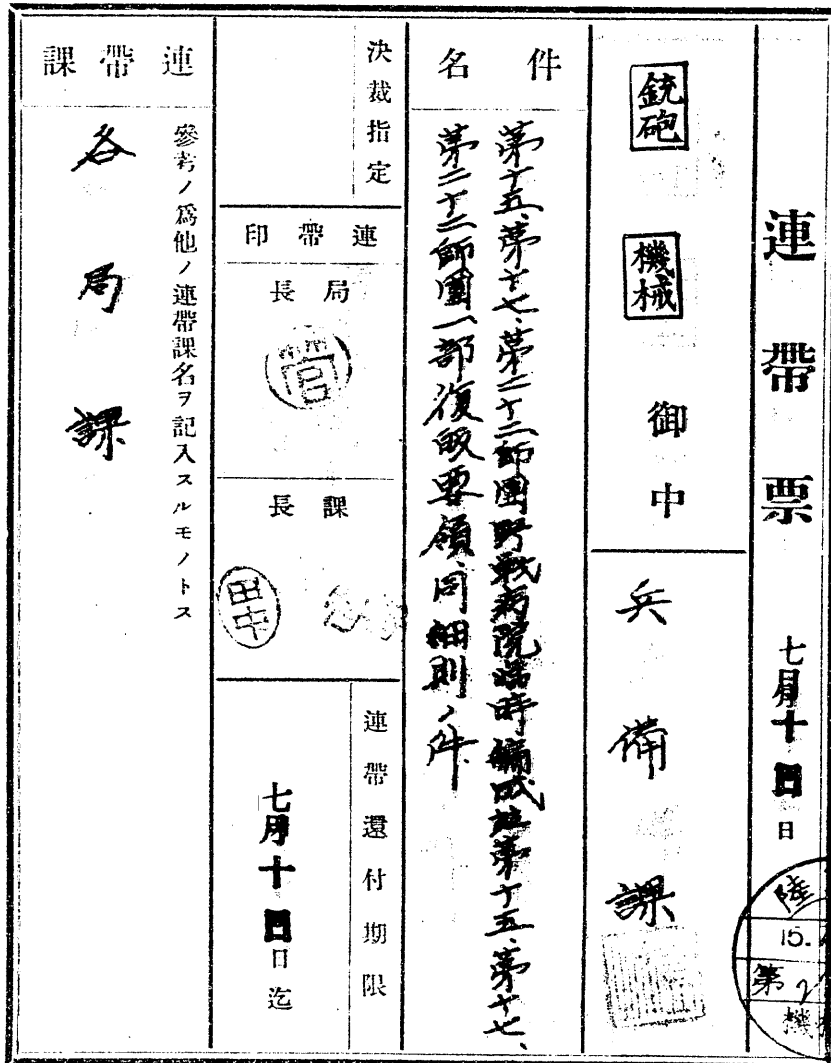 連帶票
七月十四日
陸
15.
第2
機
銃砲
機械
御中
兵備課
件名
第十五、第十七、第二十二師團野戰病院臨時編成竝第十五、第十七、
第二十二師團一部復皈要領、同細則ノ件
決裁指定
連帶印
局長
菅
課長
田中
連帶還付期限
七月十四日迄
連帶課
參考ノ爲他ノ連帶課名ヲ記入スルモノトス
各局課